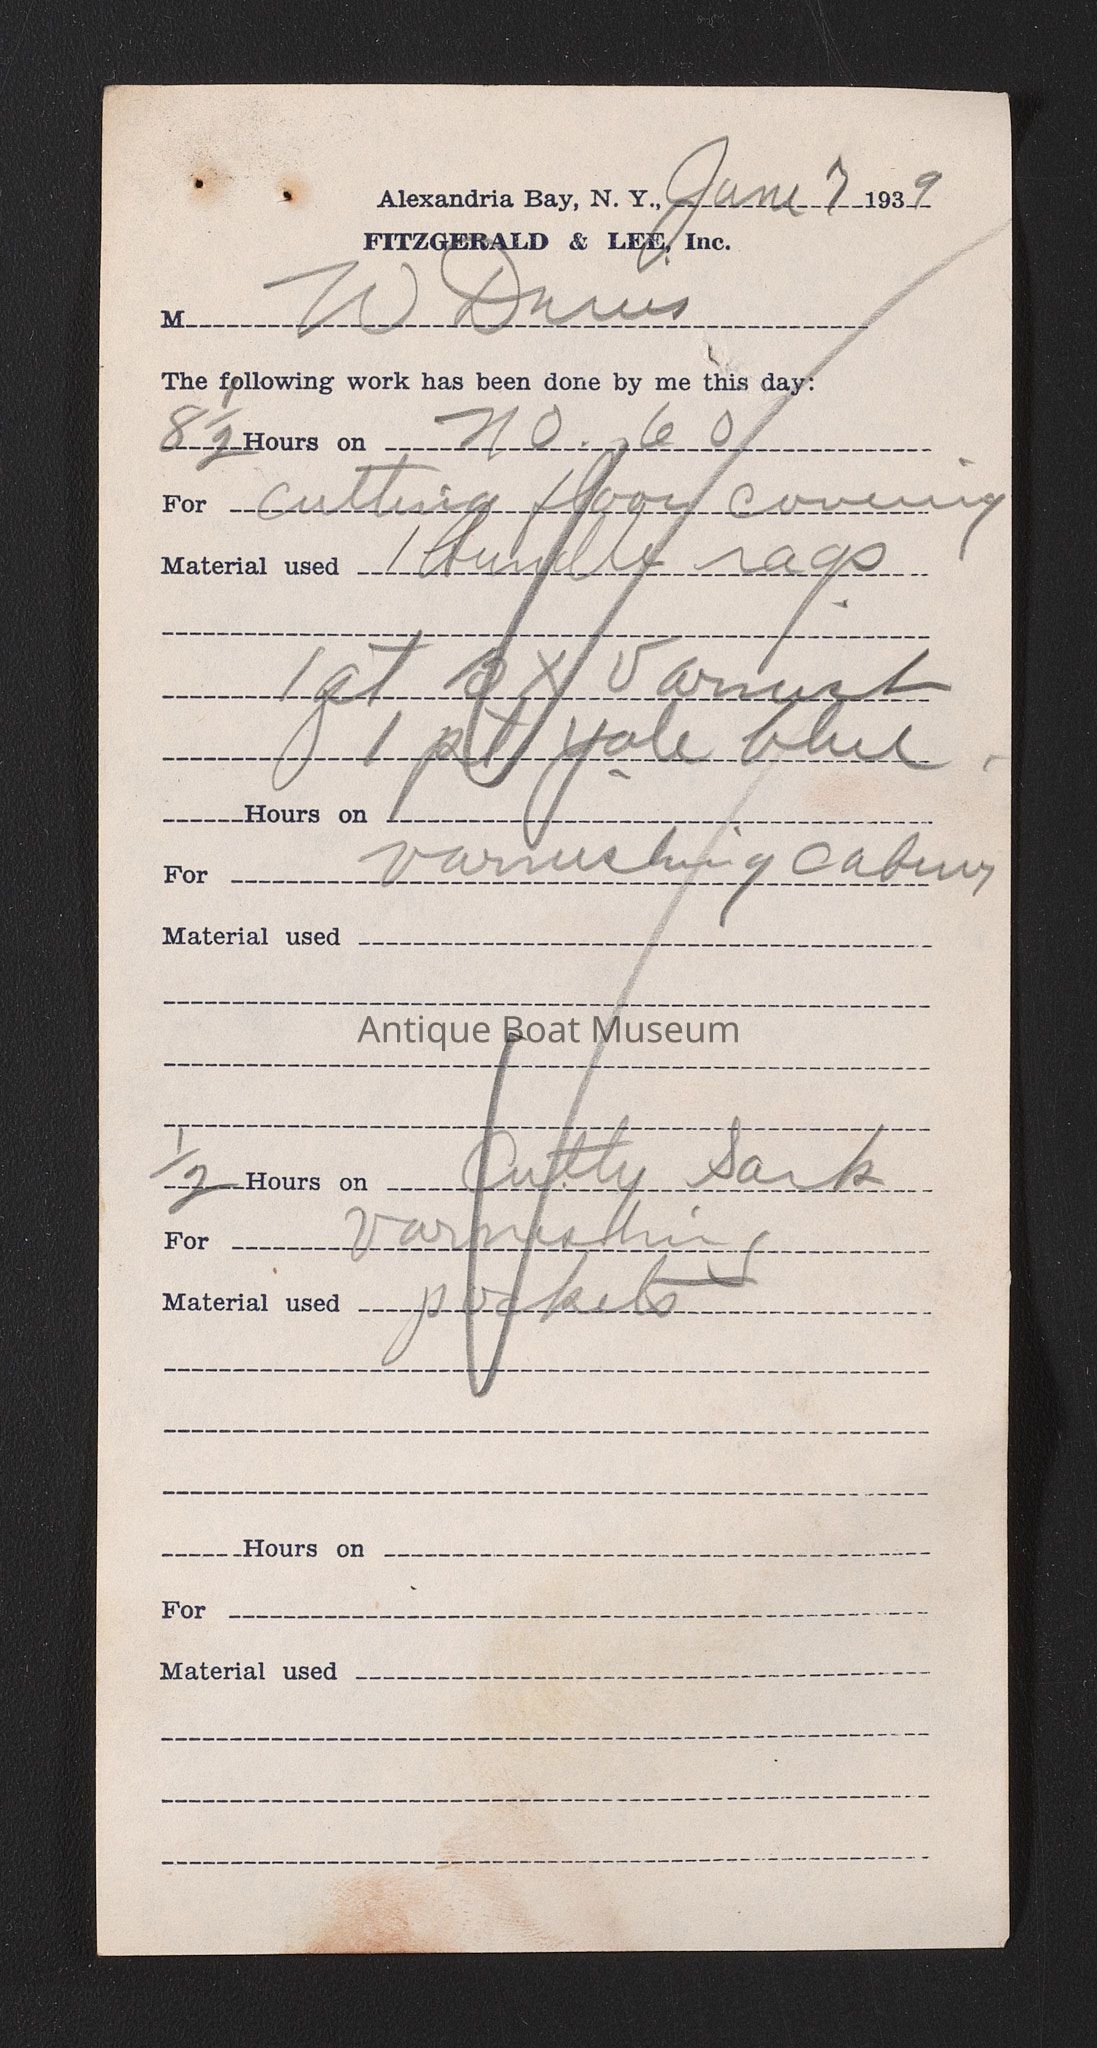 Alexandria Bay, N. Y., June 7 1939
FITZGERALD & LEE, Inc.
M W
The following work has been done by me this day:
8 1/2 Hours on No. 60
For cutting floor covering
Material used 1 bundle rags
1 qt varnish
1 pt yale blue
Hours on
For varnishing cabins
Material used
Antique Boat Museum
1/2 Hours on Cutty Sark
For varnishing
Material used pockets
Hours on
For
Material used